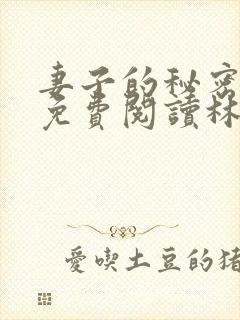 妻子的秘密
免費閱讀林
愛喫土豆的猪